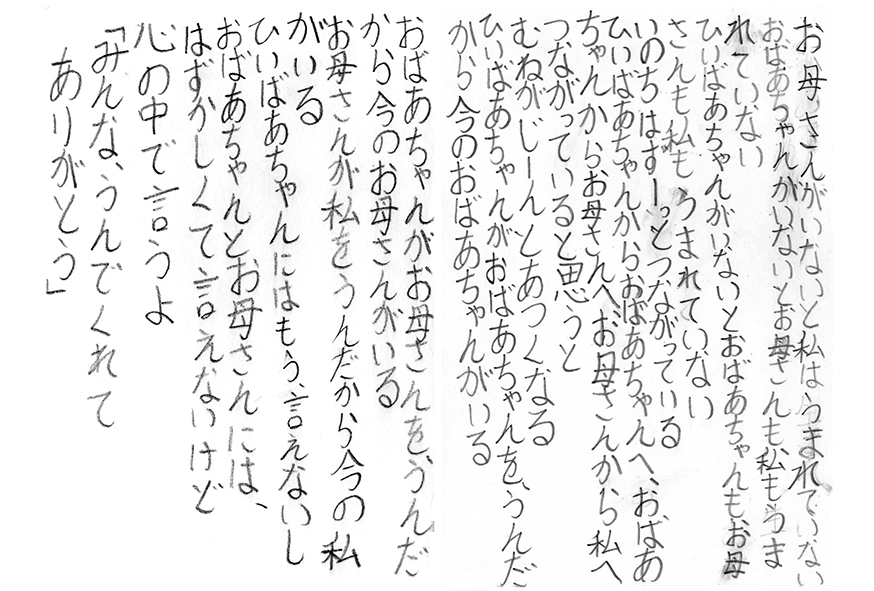 お母さんがいないと私はうまれていない
おばあちゃんがいないとお母さんも、私もうま
れていない
ひいばあちゃんがいないとおばあちゃんもお母
さんも私もうまれていない
いのちはずーっとつながっている
ひいばあちゃんからおばあちゃんへ、おばあ
ちゃんからお母さんへ、お母さんから私へ
つながっていると思うと
むねがじーんとあつくなる
ひいばあちゃんがおばあちゃんを、うんだ
から今のおばあちゃんがいる
おばあちゃんがお母さんを、うんだ
から今のお母さんがいる
お母さんが私をうんだから今の私
がいる
ひいばあちゃんにはもう、言えないし
おばあちゃんとお母さんには、
はずかしくて言えないけど
心の中で言うよ
「みんな、うんでくれて
ありがとう」